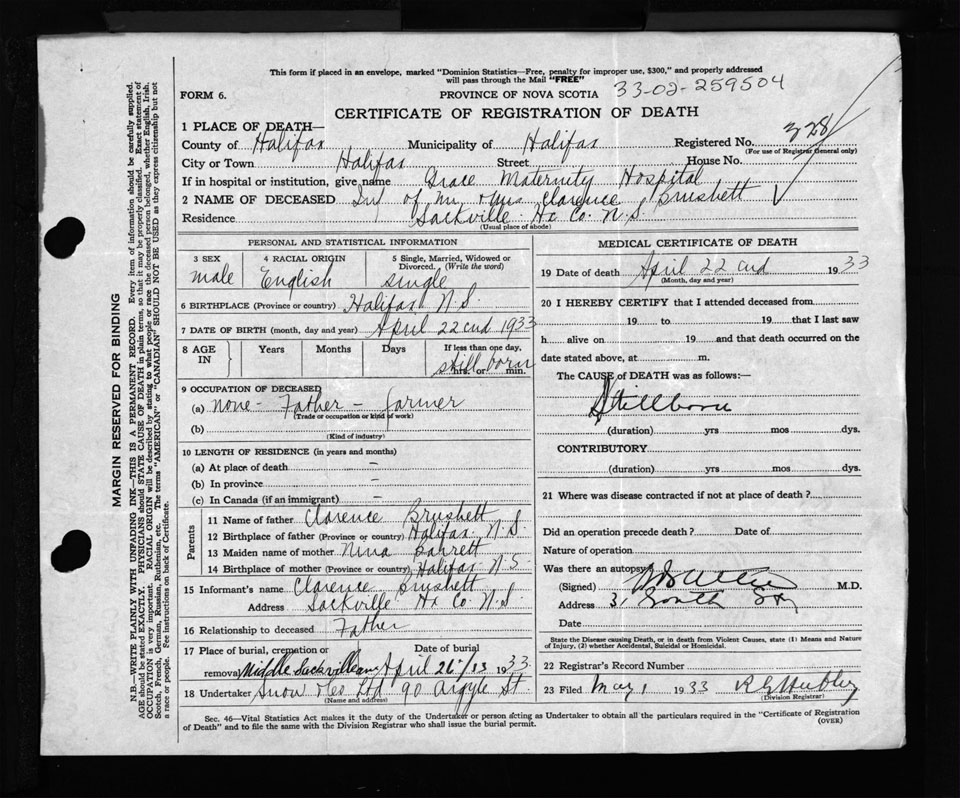 This form if placed in an envelope, marked "Dominion Statistics—Free, penalty for improper use, $300," and properly addressed
will pass through the Mail "FREE"
FORM 6.
PROVINCE OF NOVA SCOTIA
33-02-259504
CERTIFICATE OF REGISTRATION OF DEATH
1 PLACE OF DEATH—
328
County of Halifax Municipality of Halifax Registered No.
(For use of Registrar General only)
City or Town Halifax Street House No.
If in hospital or institution, give name Grace Maternity Hospital
2 NAME OF DECEASED Inf of Mr Clarence Brushett
Residence Sackville Hx Co. N.S.
(Usual place of abode)
PERSONAL AND STATISTICAL INFORMATION
3 SEX 4 RACIAL ORIGIN 5 Single, Married, Widowed or
Divorced. (Write the word)
male English single
6 BIRTHPLACE (Province or country) Halifax N.S.
7 DATE OF BIRTH (month, day and year) April 22 1933
8 AGE IN Years Months Days If less than one day,
hrs. or min.
still born
9 OCCUPATION OF DECEASED
(a) none - Father - farmer
(Trade or occupation or kind of work)
(b)
(Kind of industry)
10 LENGTH OF RESIDENCE (in years and months)
(a) At place of death —
(b) In province —
(c) In Canada (if an immigrant) —
Parents
11 Name of father Clarence Brushett
12 Birthplace of father (Province or country) Halifax N.S
13 Maiden name of mother Nina Barrett
14 Birthplace of mother (Province or country) Halifax N.S
15 Informant's name Clarence Brushett
Address Sackville Hx Co N.S.
16 Relationship to deceased Father
17 Place of burial, cremation or Date of burial
removal Middle Sackville April 26 1933
18 Undertaker Snow Ltd 90 Argyle St.
(Name and address)
MEDICAL CERTIFICATE OF DEATH
19 Date of death April 22 1933
(Month, day and year)
20 I HEREBY CERTIFY that I attended deceased from
19 to 19 that I last saw
h alive on 19 and that death occurred on the
date stated above, at m.
The CAUSE of DEATH was as follows:—
Stillborn
(duration) yrs mos dys.
CONTRIBUTORY
(duration) yrs mos dys.
21 Where was disease contracted if not at place of death?
Did an operation precede death? Date of
Nature of operation
Was there an autopsy
(Signed) M.D.
Address 31 South St
Date
State the Disease causing Death, or in death from Violent Causes, state (1) Means and Nature
of Injury, (2) whether Accidental, Suicidal or Homicidal.
22 Registrar's Record Number
23 Filed May 1 1933
(Division Registrar)
Sec. 46—Vital Statistics Act makes it the duty of the Undertaker or person acting as Undertaker to obtain all the particulars required in the "Certificate of Registration
of Death" and to file the same with the Division Registrar who shall issue the burial permit.
(OVER)
MARGIN RESERVED FOR BINDING
N.B.—WRITE PLAINLY WITH UNFADING INK—THIS IS A PERMANENT RECORD. Every item of information should be carefully supplied.
AGE should be stated EXACTLY. PHYSICIANS should STATE CAUSE OF DEATH in plain terms, so that it may be properly classified. Exact statement of
OCCUPATION is very important. RACIAL ORIGIN will be described by stating to what people or race the deceased person belonged, whether English, Irish,
Scotch, French, German, Russian, Ruthenian, etc. The terms "AMERICAN" or "CANADIAN" SHOULD NOT BE USED as they express citizenship but not
a race or people. See instructions on back of Certificate.